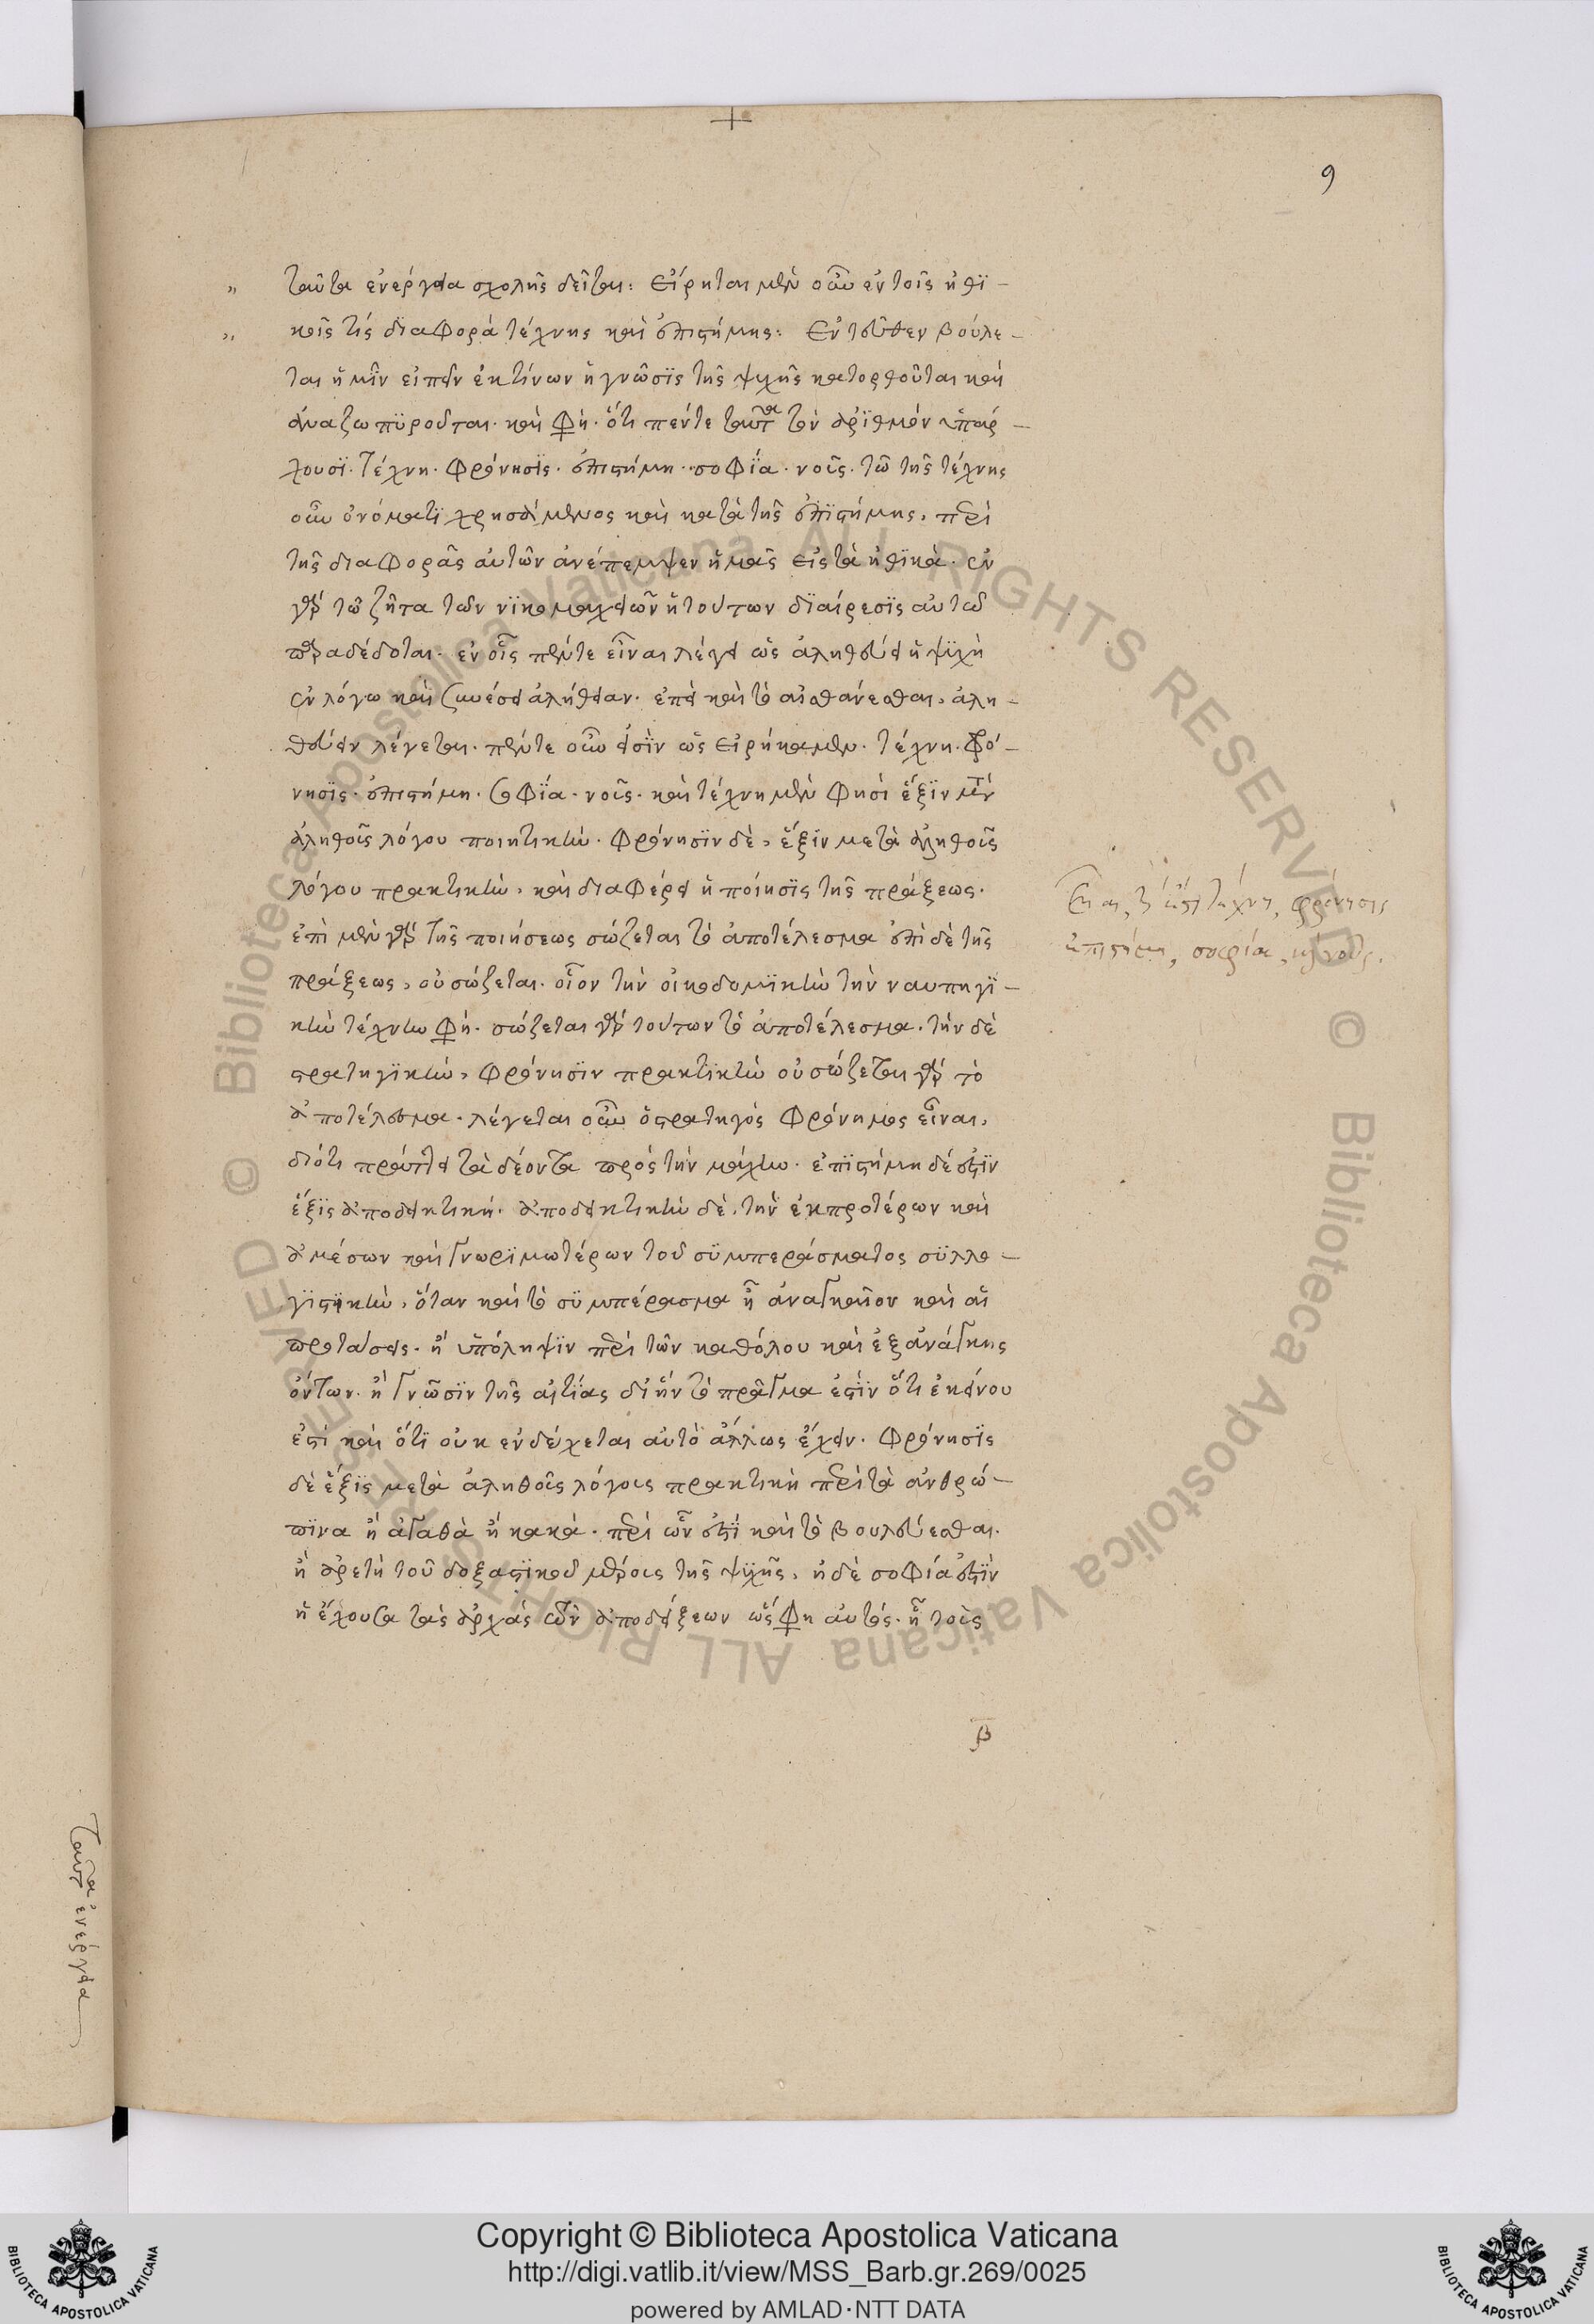 9
ταῦτα ἐνεργεία σχολῆς δεῖται: Εἴρηται μὲν οὖν ἐν τοῖς ἠθϊ-
κοῖς τίς διαφορὰ τέχνης καὶ ἐπιστήμης: Ἐντεῦθεν βούλε-
ται ἡμῖν εἰπεῖν ἐκ τίνων ἡ γνῶσϊς τῆς ψυχῆς κατορθοῦται καὶ
ἀναζωπϋροῦται. καὶ φη. ὅτι πέντε ταῦτα τὸν ἀρϊθμόν ὑπάρ-
χουσϊ. τέχνη. φρόνησϊς. ἐπιστήμη. σοφΐα. νοῦς. τῶ τῆς τέχνης
οὖν ὀνόματϊ χρησάμενος καὶ κατὰ τῆς ἐπϊστήμης, περὶ
τῆς διαφορᾶς αὐτῶν ἀνέπεμψεν ἡμᾶς εἰς τὰ ἠθϊκὰ. ἐν
γὰρ τῶ ζῆτα τῶν νϊκομαχείων ἡ τούτων δϊαίρεσϊς αὐτῶ
παραδέδοται. ἐν οἷς πέντε εἶναι λέγει ὡς ἀληθεύει ἡ ψϋχὴ
ἐν λόγω καὶ συνέσει ἀλήθειαν. ἐπεὶ καὶ τὸ αἰσθάνεσθαι, ἀλη-
θεύειν λέγεται. πέντε οὖν εἰσὶν ὡς εἰρήκαμεν. τέχνη. φρό-
νησϊς. ἐπιστήμη. σοφΐα. νοῦς. καὶ τέχνη μὲν φησὶ ἕξϊν μετὰ
ἀληθοῦς λόγου ποιητικὴν. φρόνησϊν δὲ, ἕξϊν μετὰ ἀληθοῦς
λόγου πρακτικὴν, καὶ διαφέρει ἡ ποίησϊς τῆς πράξεως.
ἐπὶ μὲν γὰρ τῆς ποιήσεως σώζεται τὸ ἀποτέλεσμα ἐπὶ δὲ τῆς
πράξεως, οὐ σώζεται. οἷον τὴν οἰκοδομϊκὴν τὴν ναυπηγϊ-
κὴν τέχνην φη. σώζεται γὰρ τούτων τὸ ἀποτέλεσμα. τὴν δὲ
στρατηγϊκὴν, φρόνησϊν πρακτϊκὴν οὐ σώζεται γὰρ τὸ
ἀποτέλεσμα. λέγεται οὖν ὁ στρατηγός φρόνημος εἶναι,
διότι πράττει τὰ δέοντα πρὸς τὴν μάχην. ἐπϊστήμη δέ ἐστϊν
ἕξϊς ἀποδεικτική. ἀποδεικτικὴν δὲ, τὴν ἐκ προτέρων καὶ
ἀμέσων καὶ γνωρϊμωτέρων τοῦ σϋμπεράσματος σϋλλο-
γϊστϊκὴν, ὅταν καὶ τὸ σϋμπέρασμα ἦ ἀναγκαῖον καὶ αἱ
προτάσεις. ἢ ὑπόληψϊν περὶ τῶν καθόλου καὶ ἐξ ἀνάγκης
ὄντων. ἢ γνῶσϊν τῆς αἰτίας δι ἣν τὸ πρᾶγμα ἐστὶν ὅτι ἐκείνου
ἐστὶ καὶ ὅτϊ οὐκ ἐνδέχεται αὐτὸ ἄλλως ἔχειν. φρόνησϊς
δὲ ἕξϊς μετὰ ἀληθοῦς λόγους πρακτικὴ περὶ τὰ ἀνθρώ-
πϊνα ἢ ἀγαθὰ ἢ κακά. περὶ ὧν ἐστϊ καὶ τὸ βουλεύεσθαι.
ἢ ἀρετὴ τοῦ δοξαστϊκοῦ μέρους τῆς ψϋχῆς, ἡ δὲ σοφία ἐστϊν
ἡ ἔχουσα τὰς ἀρχάς τῶν ἀποδείξεων ὥς φη αὐτός. ἢ τοὺς
β
φρόνησις
ἐπιστήμη, σοφία, καὶ νοῦς.
ταῦτα ἐνεργεία
Copyright © Biblioteca Apostolica Vaticana
http://digi.vatlib.it/view/MSS_Barb.gr.269/0025
powered by AMLAD·NTT DATA
BIBLIOTECA APOSTOLICA VATICANA
BIBLIOTECA APOSTOLICA VATICANA
© Biblioteca Apostolica Vaticana ALL RIGHTS RESERVED © Biblioteca Apostolica Vaticana ALL RIGHTS RESERVED